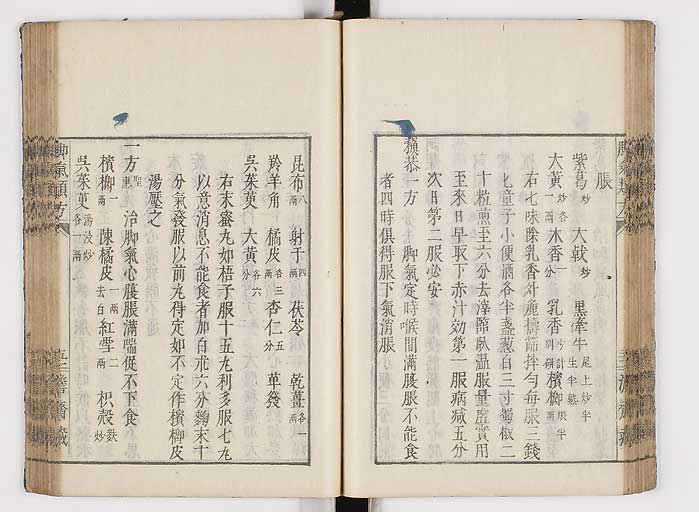 脹
紫葛炒 大戟炒 黒牽牛尾上炒半生半熟
大黄一兩炒各 木香一分 乳香 檳榔
右七味除乳香外麁擣篩拌匀每服三錢
匕童子小便酒各半盞葱白三寸蜀椒二
十粒煎至六分去滓臨臥温服量虚實用
至來日早取下赤汁効第一服病減五分
次日第二服必安
蘇恭一方 脚氣定時候間滿脹不能食
者四時俱得服下氣消脹
昆布八兩 射干四兩 茯苓 乾薑各一兩
羚羊角 橘皮各三兩 杏仁五分 葶藶
吳茱萸 大黄各六分
右末蜜丸如梧子服十五丸利多服七丸
以意消息不能食者加白朮六分麴末十
分氣發服以前丸得定如不定作檳榔皮
湯壓之
一方聖惠 治脚氣心腹脹滿喘促不下食
檳榔一兩 陳橘皮一兩去白 紅雪二兩 枳殼麩炒
吳茱萸湯浸炒各一兩
脚氣類方